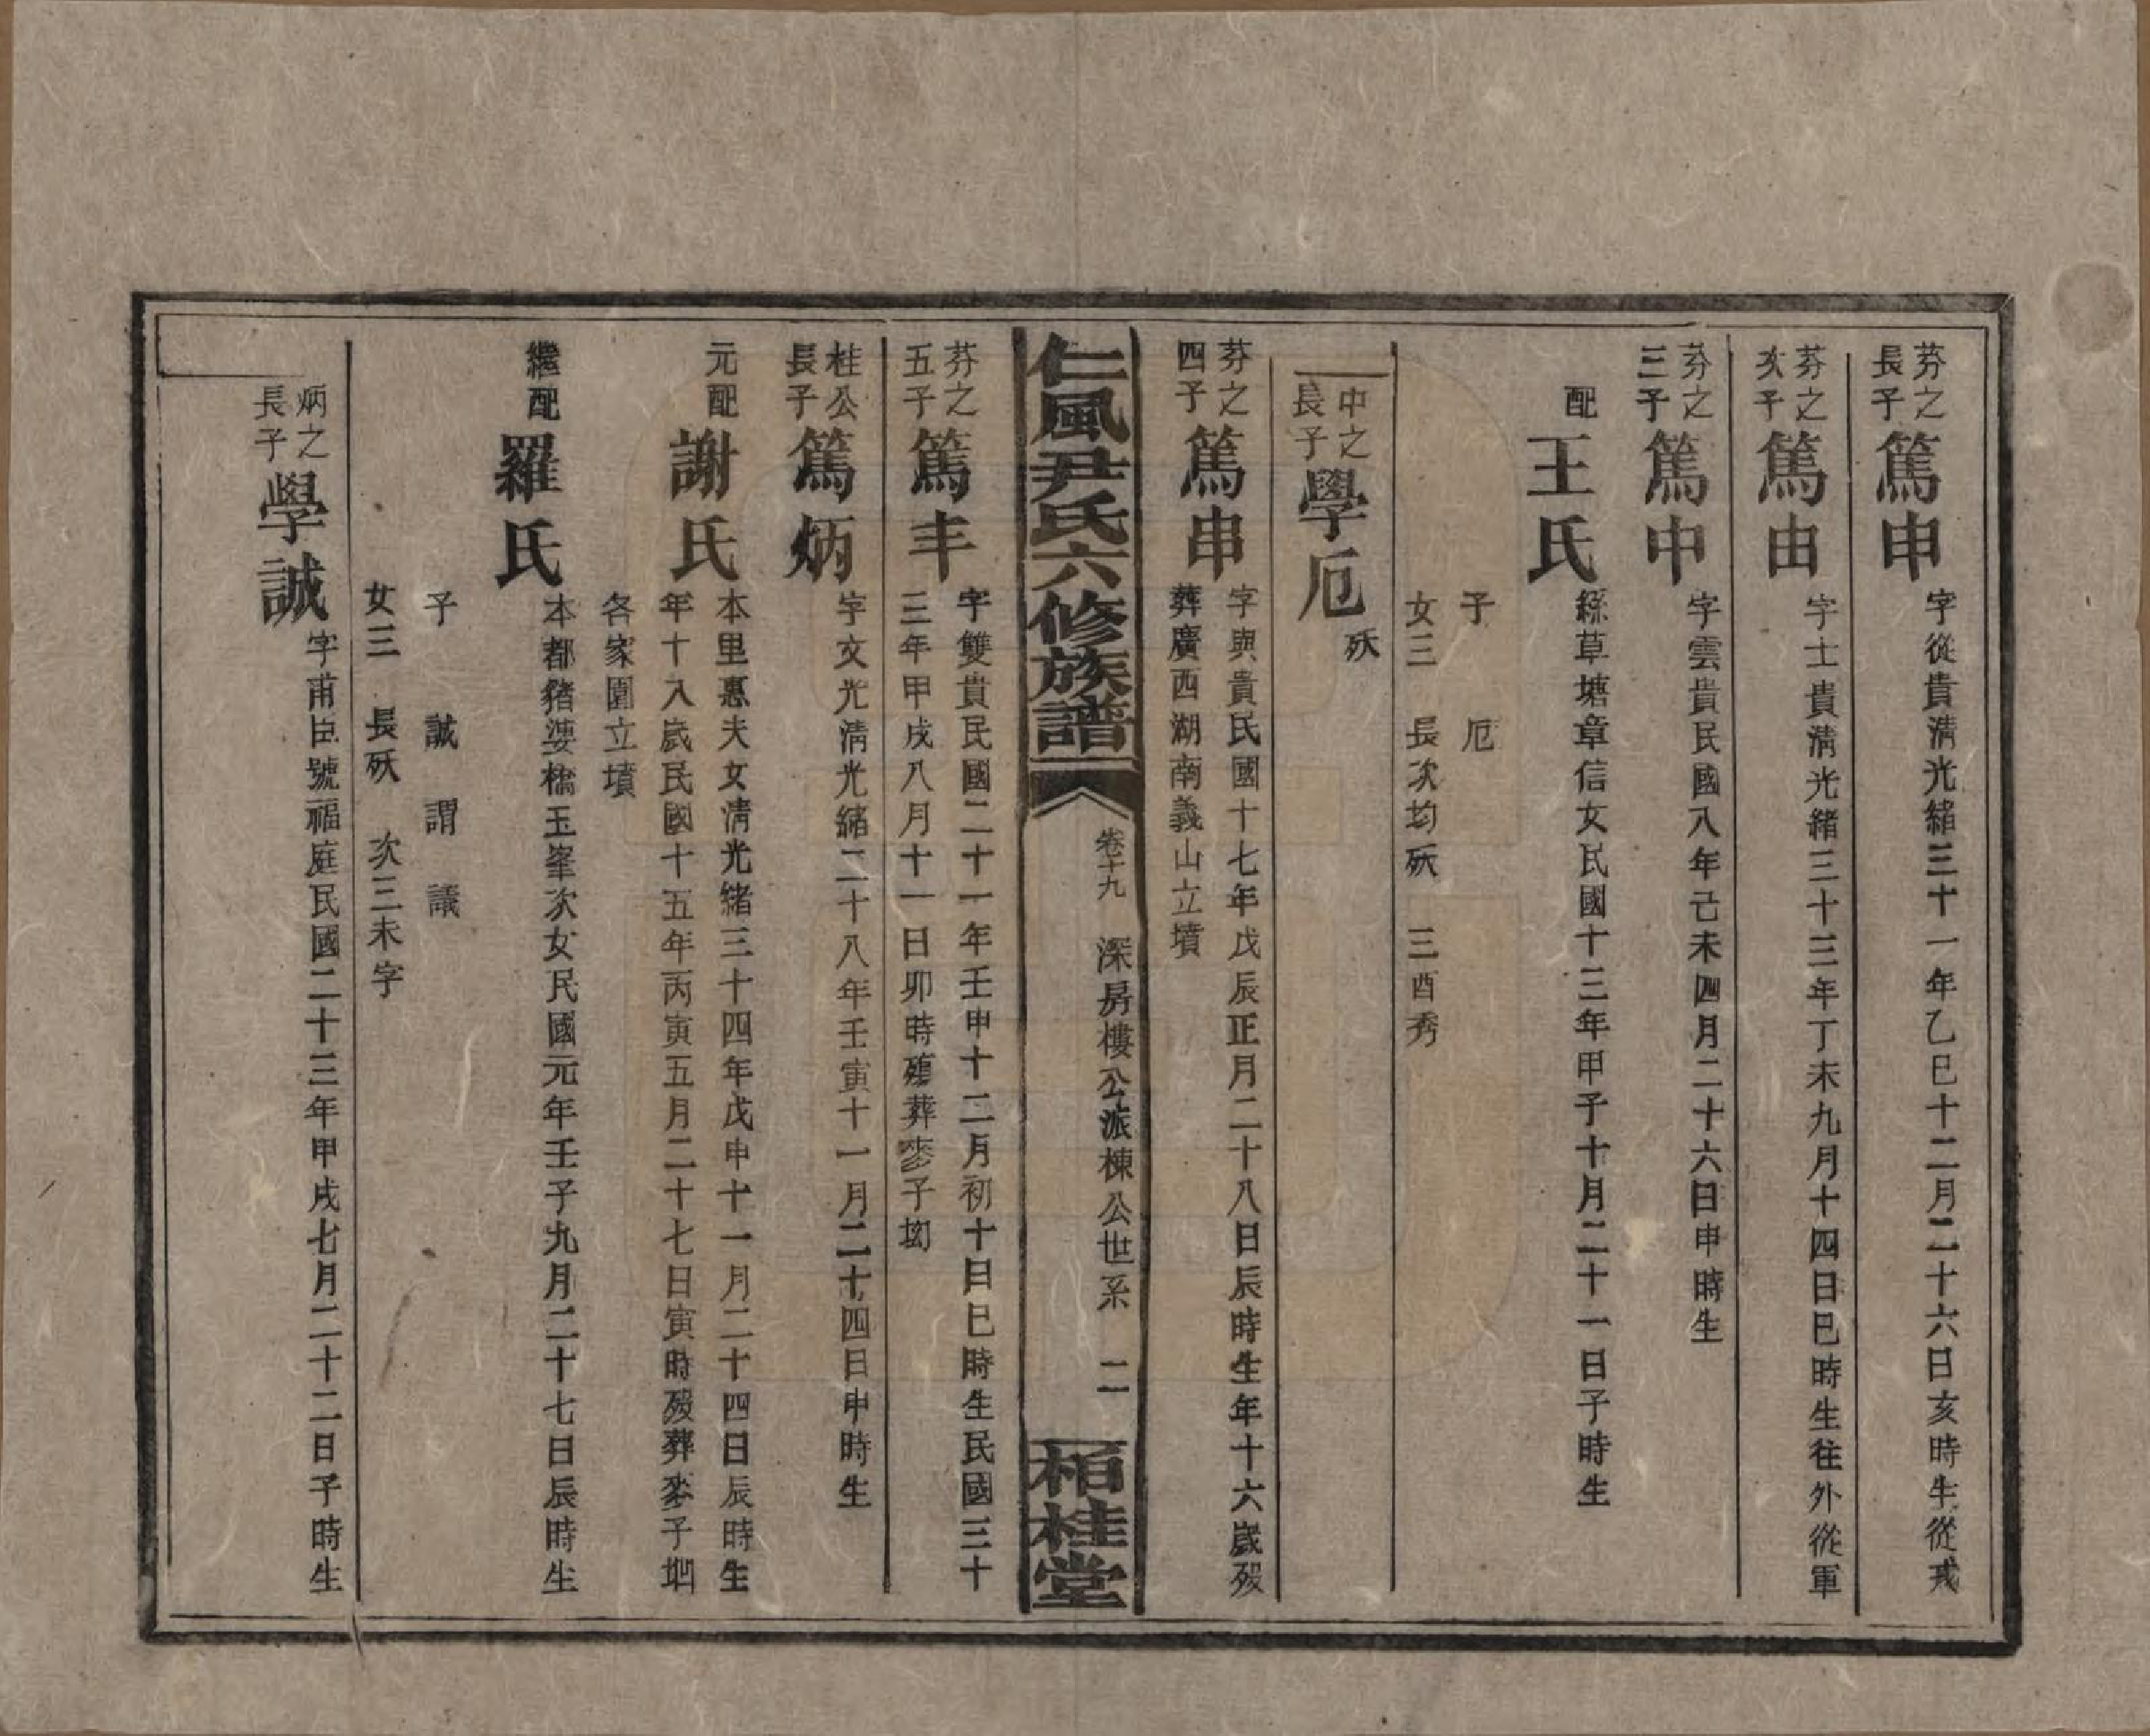 芬之長子 篤申 字從貴清光緒三十一年乙巳十二月二十六日亥時生從戎
芬之次子 篤由 字士貴清光緒三十三年丁未九月十四日巳時生往外從軍
芬之三子 篤中 字雲貴民國八年己未四月二十六日申時生
配 王氏 綠草塘章信女民國十三年甲子十月二十一日子時生
子 厄
女三 長次均殀 三酉秀
中之長子 學厄 殀
芬之四子 篤串 字興貴民國十七年戊辰正月二十八日辰時生年十六歲歿
葬廣西湖南義山立墳
仁風尹氏六修族譜 卷十九 深房樓公派棟公世系 二 栢桂堂
芬之五子 篤丰 字雙貴民國二十一年壬申十二月初十日巳時生民國三十
三年甲戌八月十一日卯時殤葬麥子坳
桂公長子 篤炳 字文光清光緒二十八年壬寅十一月二十四日申時生
元配 謝氏 本里惠夫女清光緒三十四年戊申十一月二十四日辰時生
年十八歲民國十五年丙寅五月二十七日寅時歿葬麥子坳
各家園立墳
繼配 羅氏 本都豬婆橋玉峯次女民國元年壬子九月二十七日辰時生
子 誠 謂 議
女三 長殀 次三未字
炳之長子 學誠 字甫臣號福庭民國二十三年甲戌七月二十二日子時生